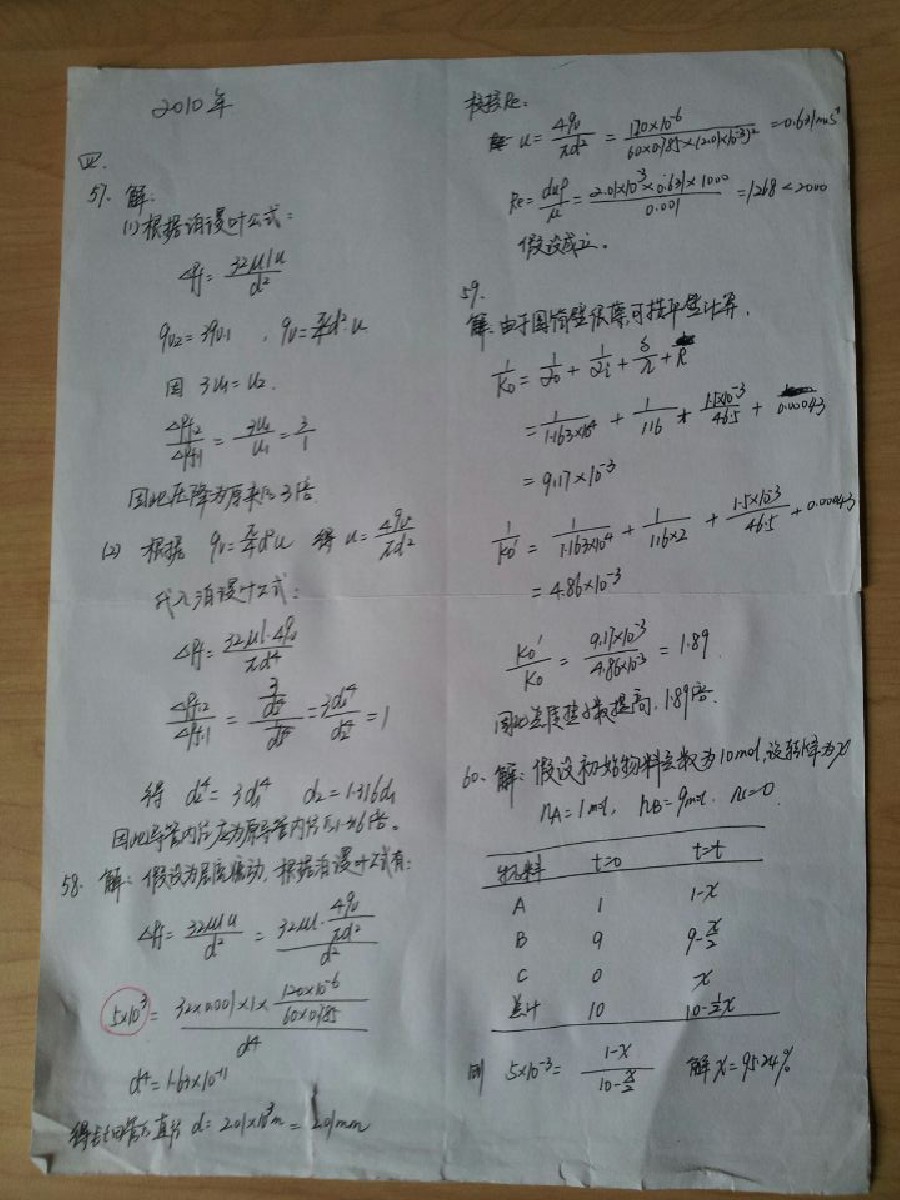 2010年
四.
57. 解:
(1) 根据泊谡叶公式:
ΔPf = 32μlu / d²
qv2 = 3qv1 , qv = π/4 d²·u
因 3u1 = u2.
ΔPf2 / ΔPf1 = 3u1 / u1 = 3/1
因此压降为原来的3倍.
(2) 根据 qv = π/4 d²u 得 u = 4qv / πd²
代入泊谡叶公式:
ΔPf = 32μl·4qv / πd⁴
ΔPf2 / ΔPf1 = (3/d2⁴) / (1/d1⁴) = 3d1⁴ / d2⁴ = 1
得 d2⁴ = 3d1⁴ d2 = 1.316d1
因此导管内径应为原导管内径的1.316倍。
58. 解: 假设为层流流动, 根据泊谡叶公式有:
ΔPf = 32μlu / d² = 32μl·(4qv / πd²) / d²
5×10³ = 32×0.001×1×(120×10⁻⁶ / 60×0.785) / d⁴
d⁴ = 1.63×10⁻¹¹
得 d = 2.01×10⁻³m = 2.01mm
校核Re:
u = 4qv / πd² = 120×10⁻⁶ / 60×0.785×(2.01×10⁻³)² = 0.631m·s⁻¹
Re = duρ / μ = 2.01×10⁻³×0.631×1000 / 0.001 = 1268 < 2000
假设成立.
59.
解: 由于圆筒壁很薄,可按平壁计算,
1/K0 = 1/α0 + 1/αi + δ/λ + R
= 1/1.163×10⁴ + 1/116 + 1.5×10⁻³/46.5 + 0.00043
= 9.17×10⁻³
1/K0' = 1/1.163×10⁴ + 1/116×2 + 1.5×10⁻³/46.5 + 0.00043
= 4.86×10⁻³
K0' / K0 = 9.17×10⁻³ / 4.86×10⁻³ = 1.89
因此总传热系数提高, 1.89倍.
60. 解: 假设初始物料总数为10mol,设转化率为x
nA = 1mol, nB = 9mol. nC = 0.
物料 t=0 t=t
A 1 1-x
B 9 9-x/2
C 0 x
总计 10 10-½x
则 5×10⁻³ = (1-x) / (10-x/2) 解 x = 95.24%